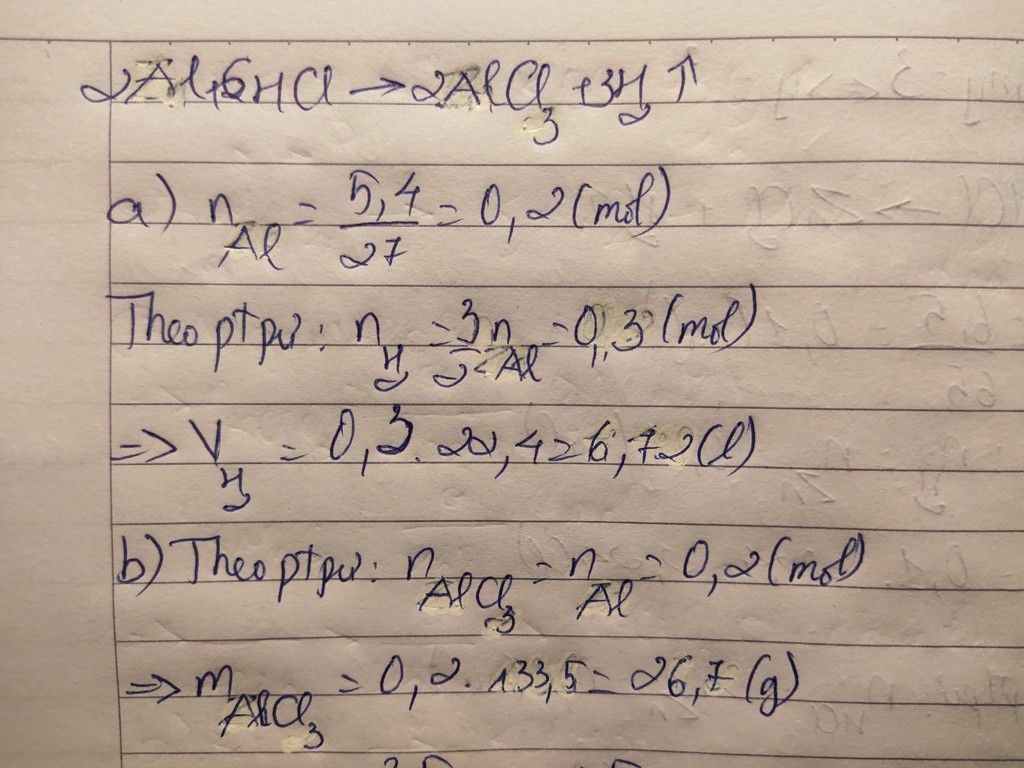 2Al+6HCl→2AlCl₃+3H₂↑
a) n_Al = 5,4/27 = 0,2 (mol)
Theo ptpư: n_H₂ = 3/2 n_Al = 0,3 (mol)
=> V_H₂ = 0,3.22,4=6,72(l)
b) Theo ptpư: n_AlCl₃ = n_Al = 0,2 (mol)
=> m_AlCl₃ = 0,2.133,5=26,7(g)